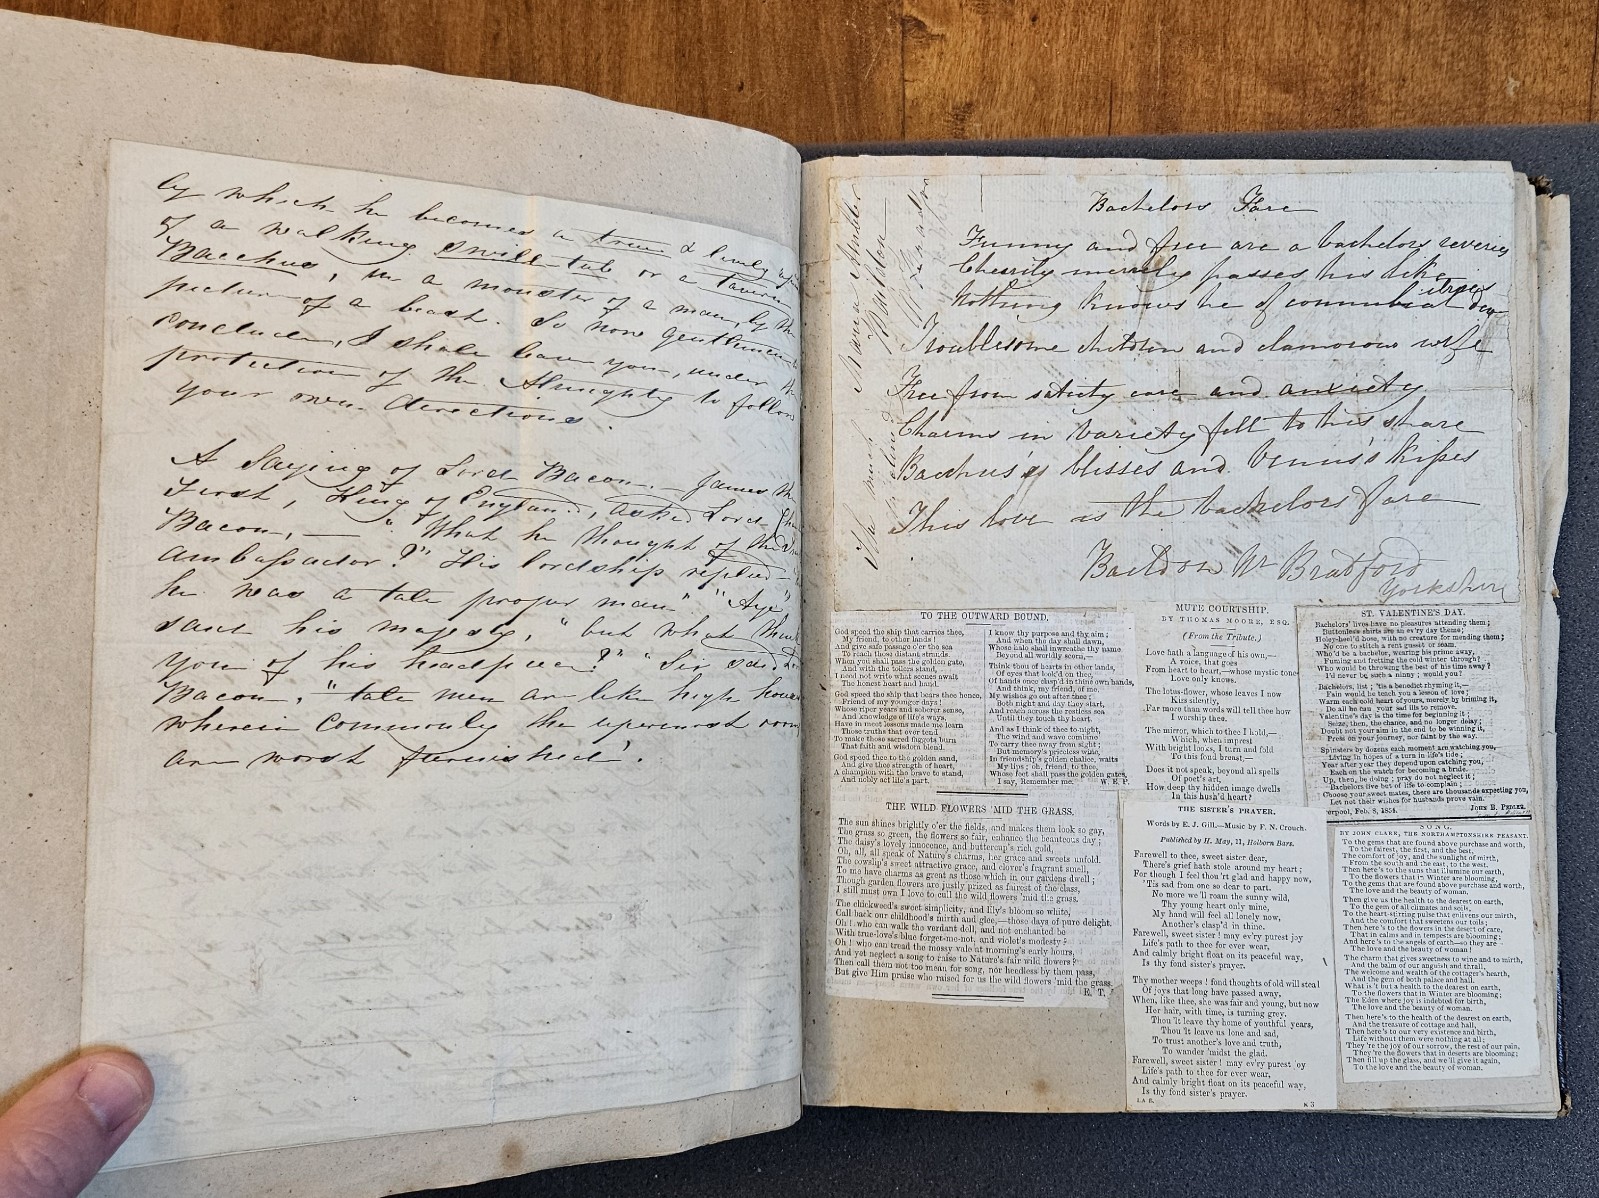 by which he becomes a true & lively
of a walking swill-tub or a tavern
Bacchus, in a monster of a man, by the
picture of a beast. So now gentlemen
conclude, I shall leave you, under the
protection of the Almighty to follow
your own directions.
A Saying of Lord Bacon. — James the
First, King of England, asked Lord
Bacon, — "What he thought of the
ambassador?" His lordship replied
he was a tale proper man". "Aye",
said his majesty, "but what think
you of his headpiece?" "Sir said
Bacon, "tale men are like high houses
wherein commonly the uppermost rooms
are worst furnished".
Bachelors Fare
Funny and free are a bachelors reveries
Cheerily merrily passes his life
Nothing knows he of connubial
Troublesome children and clamorous wife
Free from satiety care and anxiety
Charms in variety fall to his share
Bacchus's blisses and Venus's kisses
This love is the bachelors fare
Baildon Nr Bradford
Yorkshire
TO THE OUTWARD BOUND.
God speed the ship that carries thee,
My friend, to other lands!
And give safe passage o'er the sea
To reach those distant strands.
When you shall pass the golden gate,
And with the toilers stand,
I need not write what scenes await
The honest heart and hand.
God speed the ship that bears thee hence,
Friend of my younger days!
Whose riper years and soberer sense,
And knowledge of life's ways,
Have in most lessons made me learn
Those truths that ever tend
To make those sacred fagots burn
That faith and wisdom blend.
God speed thee to the golden sand,
And give thee strength of heart,
A champion with the brave to stand,
And nobly act life's part.
I know thy purpose and thy aim;
And when the day shall dawn,
Whose halo shall inwreathe thy name
Beyond all worldly scorn,—
Think thou of hearts in other lands,
Of eyes that look'd on thee,
Of hands once clasp'd in thine own hands,
And think, my friend, of me.
My wishes go out after thee;
Both night and day they start,
And reach across the restless sea
Until they touch thy heart.
And as I think of thee to-night,
The wind and wave combine
To carry thee away from sight;
But memory's priceless wine,
In friendship's golden chalice, waits
My lips; oh, friend, to thee,
Whose feet shall pass the golden gates,
I say, Remember me. W. E. P.
THE WILD FLOWERS 'MID THE GRASS.
The sun shines brightly o'er the fields, and makes them look so gay,
The grass so green, the flowers so fair, enhance the beauteous day;
The daisy's lovely innocence, and buttercup's rich gold,
Oh, all, all speak of Nature's charms, her grace and sweets unfold.
The cowslip's sweet attractive grace, and clover's fragrant smell,
To me have charms as great as those which in our gardens dwell;
Though garden flowers are justly prized as fairest of the class,
I still must own I love to cull the wild flowers 'mid the grass.
The chickweed's sweet simplicity, and lily's bloom so white,
Call back our childhood's mirth and glee,—those days of pure delight.
Oh! who can walk the verdant dell, and not enchanted be
With true-love's blue forget-me-not, and violet's modesty?
Oh! who can tread the mossy vale at morning's early hours,
And yet neglect a song to raise to Nature's fair wild flowers?
Then call them not too mean for song, nor heedless by them pass,
But give Him praise who raised for us the wild flowers 'mid the grass.
E. T.
MUTE COURTSHIP.
BY THOMAS MOORE, ESQ.
(From the Tribute.)
Love hath a language of his own,—
A voice, that goes
From heart to heart,—whose mystic tone
Love only knows.
The lotus-flower, whose leaves I now
Kiss silently,
Far more than words will tell thee how
I worship thee.
The mirror, which to thee I hold,—
Which, when imprest
With bright looks, I turn and fold
To this fond breast,—
Does it not speak, beyond all spells
Of poet's art,
How deep thy hidden image dwells
In this hush'd heart?
THE SISTER'S PRAYER.
Words by E. J. Gill.—Music by F. N. Crouch.
Published by H. May, 11, Holborn Bars.
Farewell to thee, sweet sister dear,
There's grief hath stole around my heart;
For though I feel thou'rt glad and happy now,
'Tis sad from one so dear to part.
No more we'll roam the sunny wild,
Thy young heart only mine,
My hand will feel all lonely now,
Another's clasp'd in thine.
Farewell, sweet sister! may ev'ry purest joy
Life's path to thee for ever wear,
And calmly bright float on its peaceful way,
Is thy fond sister's prayer.
Thy mother weeps! fond thoughts of old will steal
Of joys that long have passed away,
When, like thee, she was fair and young, but now
Her hair, with time, is turning grey.
Thou'lt leave thy home of youthful years,
Thou'lt leave us lone and sad,
To trust another's love and truth,
To wander 'midst the glad.
Farewell, sweet sister! may ev'ry purest joy
Life's path to thee for ever wear,
And calmly bright float on its peaceful way,
Is thy fond sister's prayer.
ST. VALENTINE'S DAY.
Bachelors' lives have no pleasures attending them;
Buttonless shirts are an ev'ry day theme;
Holey-heel'd hose, with no creature for mending them;
No one to stitch a rent gusset or seam.
Who'd be a bachelor, wasting his prime away,
Fuming and fretting the cold winter through?
Who would be throwing the best of his time away?
I'd never be such a ninny; would you?
Bachelors, list; 'tis a benedict rhyming it,—
Fain would he teach you a lesson of love;
Warm each cold heart of yours, merely by priming it,
Do all he can your sad ills to remove.
Valentine's day is the time for beginning it;
Seize, then, the chance, and no longer delay;
Doubt not your aim in the end to be winning it,
Press on your journey, nor faint by the way.
Spinsters by dozens each moment are watching you,
Living in hopes of a turn in life's tide;
Year after year they depend upon catching you,
Each on the watch for becoming a bride.
Up, then, be doing; pray do not neglect it;
Bachelors live but of life to complain;
Choose your sweet mates, there are thousands expecting you,
Let not their wishes for husbands prove vain.
erpool, Feb. 8, 1854.
SONG.
BY JOHN CLARE, THE NORTHAMPTONSHIRE PEASANT.
To the gems that are found above purchase and worth,
To the fairest, the first, and the best,
The comfort of joy, and the sunlight of mirth,
From the south and the east, to the west.
Then here's to the suns that illumine our earth,
To the flowers that in Winter are blooming,
To the gems that are found above purchase and worth,
The love and the beauty of woman.
Then give us the health to the dearest on earth,
To the gem of all climates and soils,
To the heart-stirring pulse that enlivens our mirth,
And the comfort that sweetens our toils;
Then here's to the flowers in the desert of care,
That in calms and in tempests are blooming;
And here's to the angels of earth—so they are—
The love and the beauty of woman!
The charm that gives sweetness to wine and to mirth,
And the balm of our anguish and thrall,
The welcome and wealth of the cottager's hearth,
And the gem of both palace and hall.
What is't but a health to the dearest on earth,
To the flowers that in Winter are blooming;
The Eden where joy is indebted for birth,
The love and the beauty of woman.
Then here's to the health of the dearest on earth,
And the treasure of cottage and hall,
Then here's to our very existence and birth,
Life without them were nothing at all;
They're the joy of our sorrow, the rest of our pain,
They're the flowers that in deserts are blooming;
Then fill up the glass, and we'll give it again,
To the love and the beauty of woman.